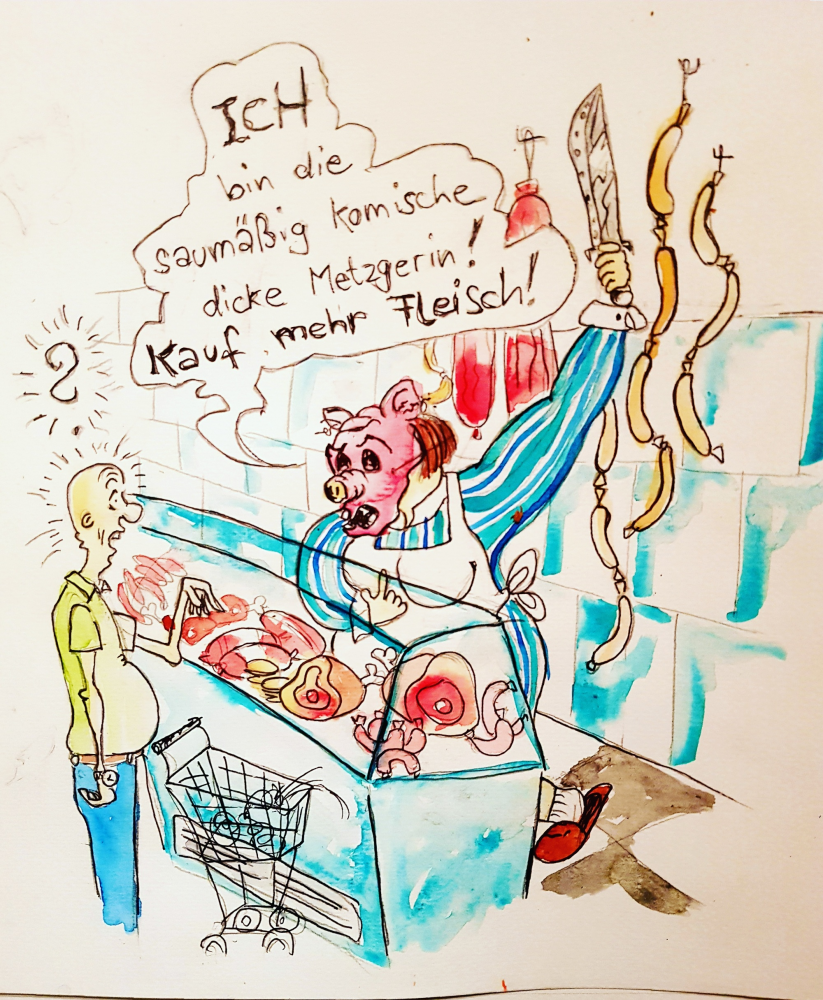 ICH
bin die
saumäßig komische
dicke Metzgerin!
Kauf mehr Fleisch!
?